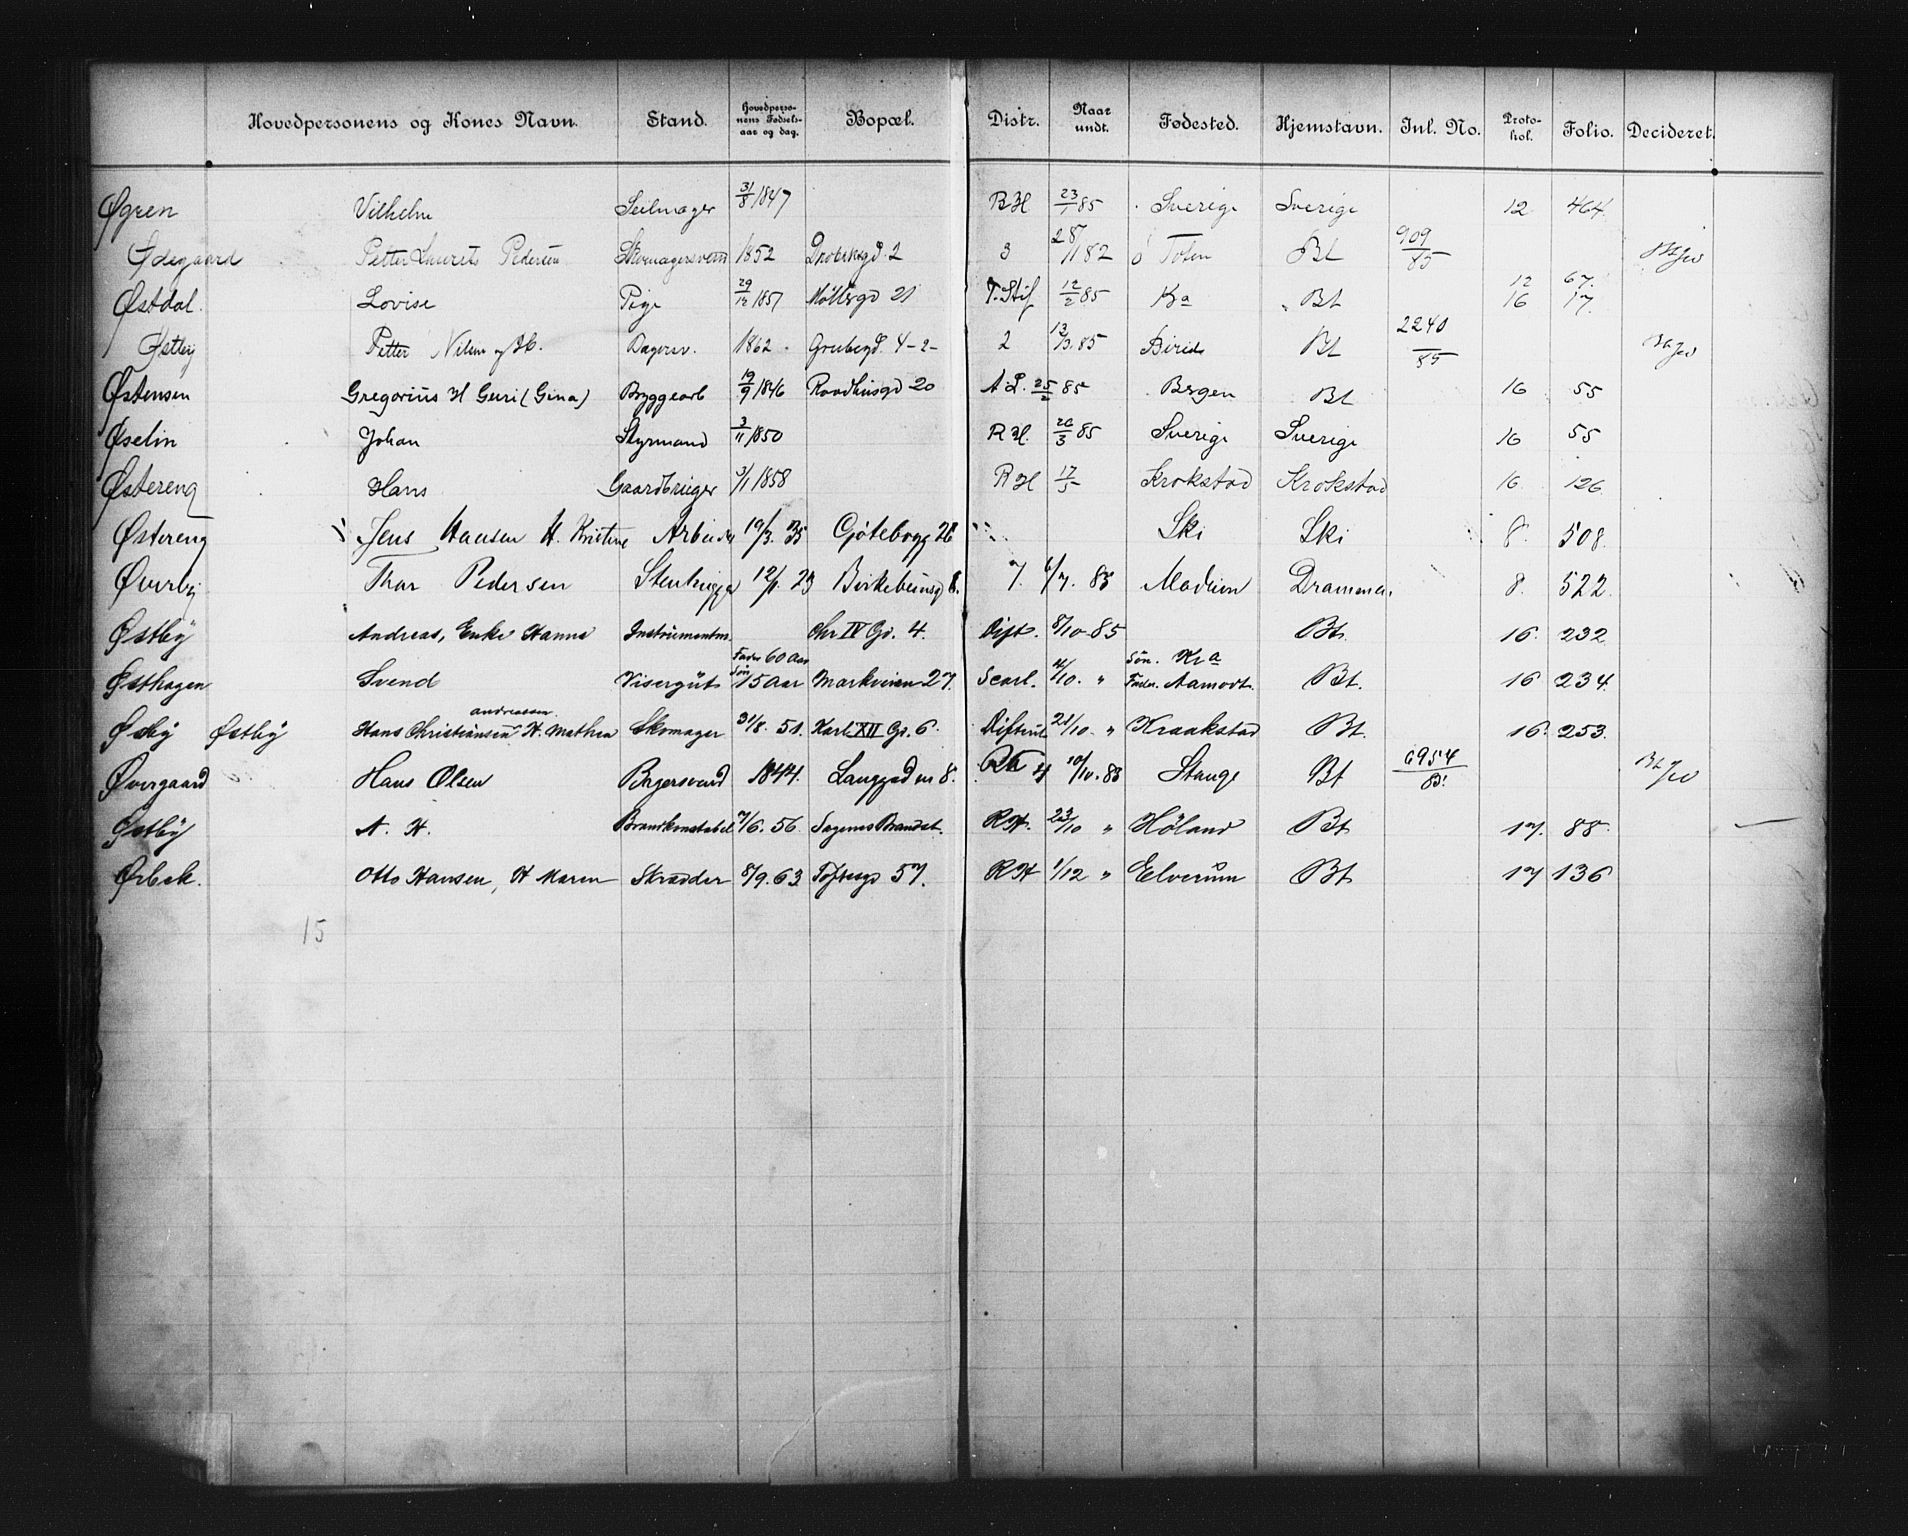 Hovedpersonens og Kones Navn. Stand. Hovedpersonens Fødselsaar og dag. Bopæl. Distr. Naar undt. Fødested. Hjemstavn. Inl. No. Protokol. Folio. Decideret.
Øgren Vilhelm Seilmager 31/8 1847 RH 23/1 85 Sverige Sverige 12 464
Ødegaard Petter Laurits Pedersen Skomagersvend 1852 2 3 28/11 82 Toten Bt 909/85
Østdal Lovise Pige 29/12 1857 Møllergd 21 T. Stif 12/2 85 Kra Bt 12 16 67. 17.
Østby Petter Nilsen og H. Bagersv. 1862 Grubegd. 4-2- 2 13/3. 85 Birids Bt 2240/85
Østensen Gregorius H Guri (Gina) Byggearb 19/9 1846 Raadhusgd 20 A. L. 25/2 85 Bergen Bt 16 55
Øselin Johan Styrmand 3/11 1850 RH. 20/3 85 Sverige Sverige 16 55
Østereng Hans Gaardbruger 3/1 1858 RH 17/5 Krokstad Krokstad 16. 126
Østereng Jens Hansen H. Kristine Arbeider 19/3. 35 Gøtebogg 26 Ski Ski 8. 508.
Øverby Thor Pedersen Stenhugger 12/1. 23 Birkebeinsg 8. 7. 6/7. 85 Modum Drammen 8. 522.
Østby Andreas, Enke Hanna Instrumentm. Chr IV Gd. 4. Dift. 8/10-85 Bt. 16. 232
Østhagen Svend Visergut Fader 60 Aar Søn 15 Aar Markveien 27. Scarl. /10. " Søn. Kra Fader. Aamodt. Bt. 16 234.
Øsby Østby Hans Christiansen andreassen H. Mathea Skomager 31/8. 51. Karl XII Gd. 6. Difterit 21/10 " Kraakstad Bt. 16. 253.
Øvergaard Hans Olsen Bagersvend 1844. Langgad no 8. 4 10/10. 85 Stange Bt 6954/85
Østby A. H. Brandkonstabel 7/6. 56. Sagenes Brandst. RH. 23/10 " Høland Bt 17. 88.
Ørbek. Otto Hansen, H Maren Skrædder 8/9. 63. Toftesgd 57. RH 1/12 " Elverum Bt 17 136
15